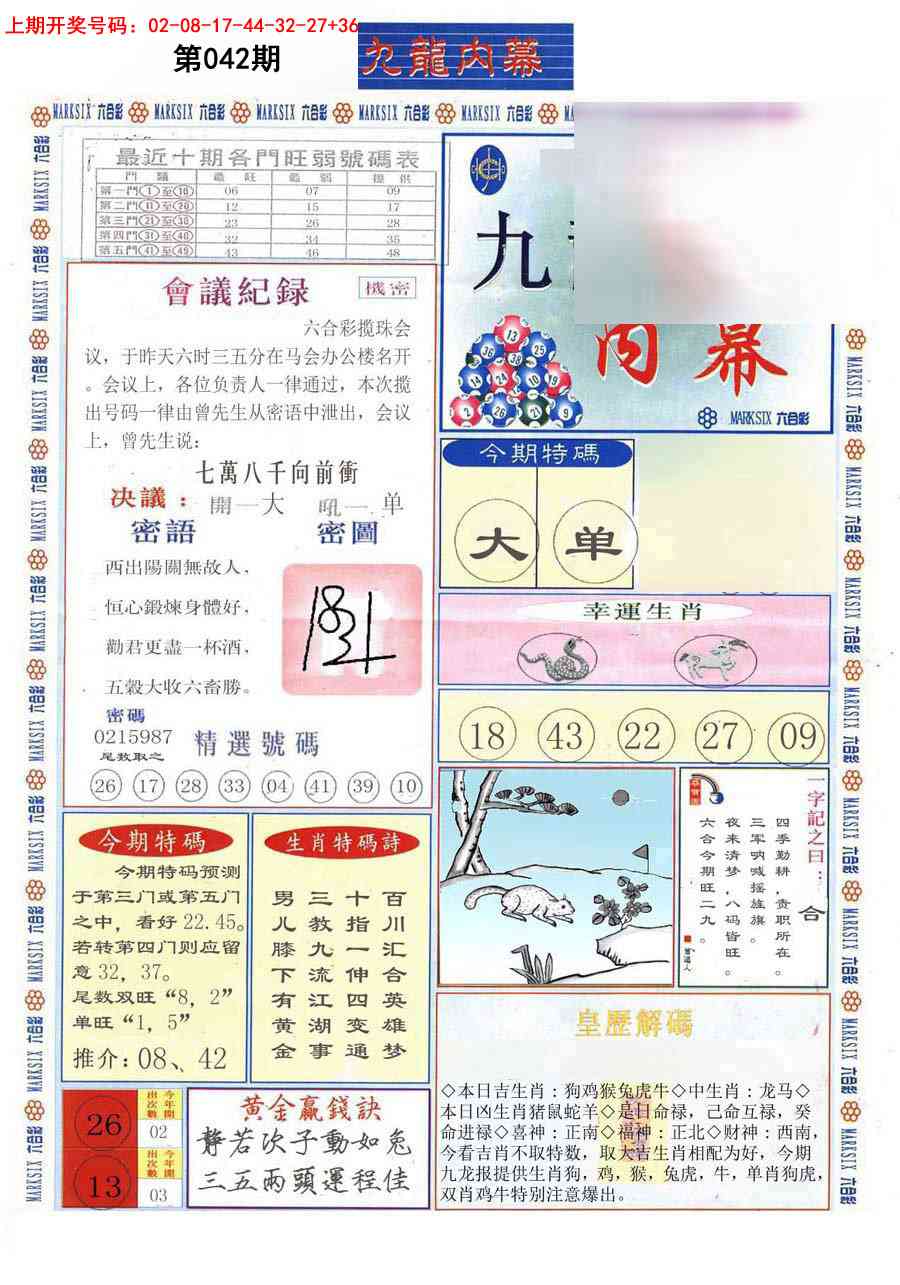 上期开奖号码：02-08-17-44-32-27+36
第042期
九龍内幕
MARKSIX 六合彩 MARKSIX 六合彩 MARKSIX 六合彩 MARKSIX 六合彩 MARKSIX 六合彩
最近十期各門旺弱號碼表
門 類 最 旺 最 弱 提 供
第一門①至⑩ 06 07 09
第二門⑪至⑳ 12 15 17
第三門㉑至㉚ 23 26 28
第四門㉛至㊵ 32 34 35
第五門㊶至㊾ 43 46 48
九
内幕
13
36 38 25
14 24 10 19
2 26 21 9
MARKSIX 六合彩
會議紀録
機密
六合彩揽珠会
议，于昨天六时三五分在马会办公楼名开
。会议上，各位负责人一律通过，本次揽
出号码一律由曾先生从密语中泄出，会议
上，曾先生说：
七萬八千向前衝
决議：開一大 吼一单
密語 密圖
西出陽關無故人，
恒心鍛煉身體好，
勸君更盡一杯酒，
五穀大收六畜勝。
密碼
0215987
尾数取之
精選號碼
26 17 28 33 04 41 39 10
今期特碼
大 单
幸運生肖
18 43 22 27 09
一字記之曰：合
四季勤耕，责职所在。
三军呐喊摇旌旗。
夜来清梦，八码皆旺。
六合今期旺二九。
今期特碼
今期特码预测
于第三门或第五门
之中，看好22.45。
若转第四门则应留
意32，37。
尾数双旺“8，2”
单旺“1，5”
推介：08、42
生肖特碼詩
百川汇合英雄梦
十指一伸四变通
三教九流江湖事
男儿膝下有黄金
皇歷解碼
◇本日吉生肖：狗鸡猴兔虎牛◇中生肖：龙马◇
本日凶生肖猪鼠蛇羊◇是日命禄，己命互禄，癸
命进禄◇喜神：正南◇福神：正北◇财神：西南，
今看吉肖不取特数，取大吉生肖相配为好，今期
九龙报提供生肖狗，鸡，猴，兔虎，牛，单肖狗虎，
双肖鸡牛特别注意爆出。
26
今年開出次數
02
13
今年開出次數
03
黄金赢錢訣
静若次子動如兔
三五兩頭運程佳